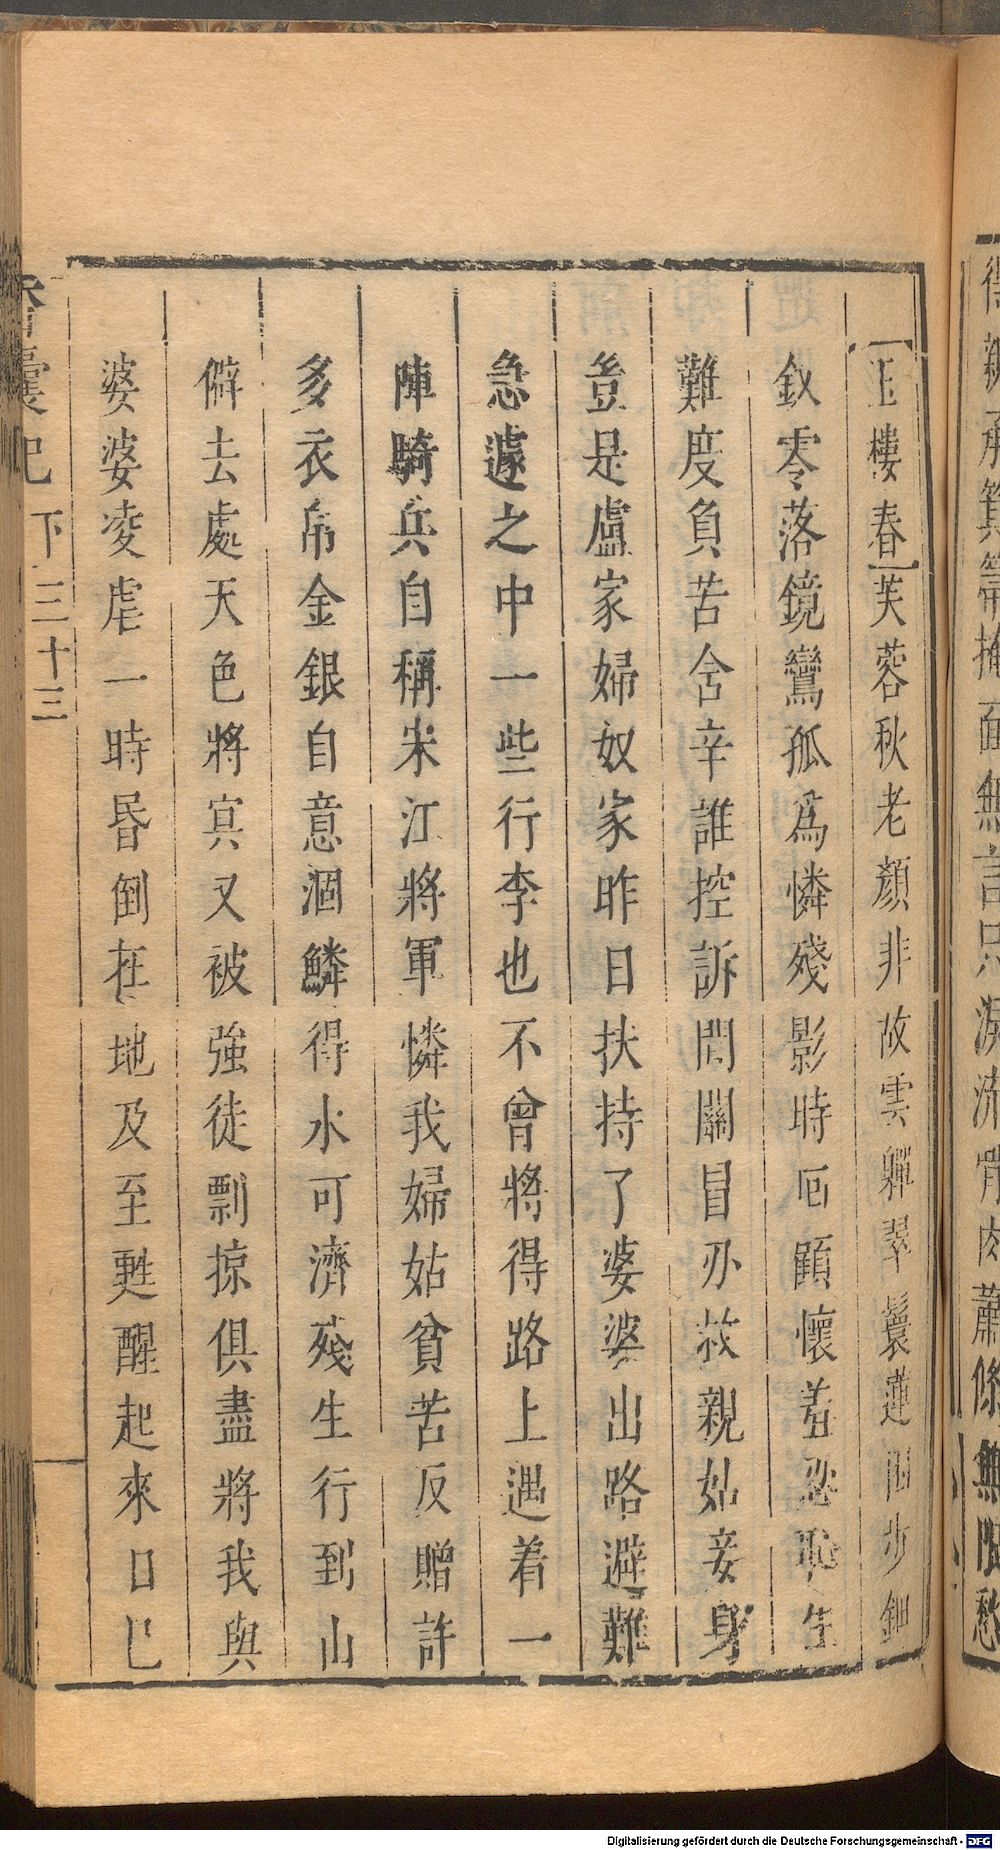 玉樓春芙蓉秋老顏非故雲軃翠鬟蓮困步鈿
釵零落鏡鸞孤爲憐殘影時回顧懷羞忍恥生
難度負苦含辛誰控訴間關冒刃救親姑妾身
豈是盧家婦奴家昨日扶持了婆婆出路避難
急遽之中一些行李也不曾將得路上遇着一
陣騎兵自稱宋江將軍憐我婦姑貧苦反贈許
多衣帛金銀自意涸鱗得水可濟殘生行到山
僻去處天色將冥又被強徒剽掠俱盡將我與
婆婆凌虐一時昏倒在地及至甦醒起來口已
囊記 下 三十三
無言只 流 肉蕭條無限愁
Digitalisierung gefördert durch die Deutsche Forschungsgemeinschaft - DFG